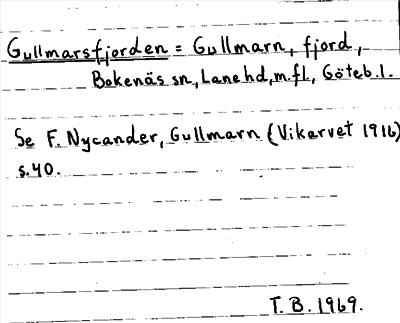 Gullmarsfjorden = Gullmarn, fjord,
Bokenäs sn, Lane hd, m.fl., Göteb.l.
Se F. Nycander, Gullmarn (Vikarvet 1916)
s.40.
T.B. 1969.